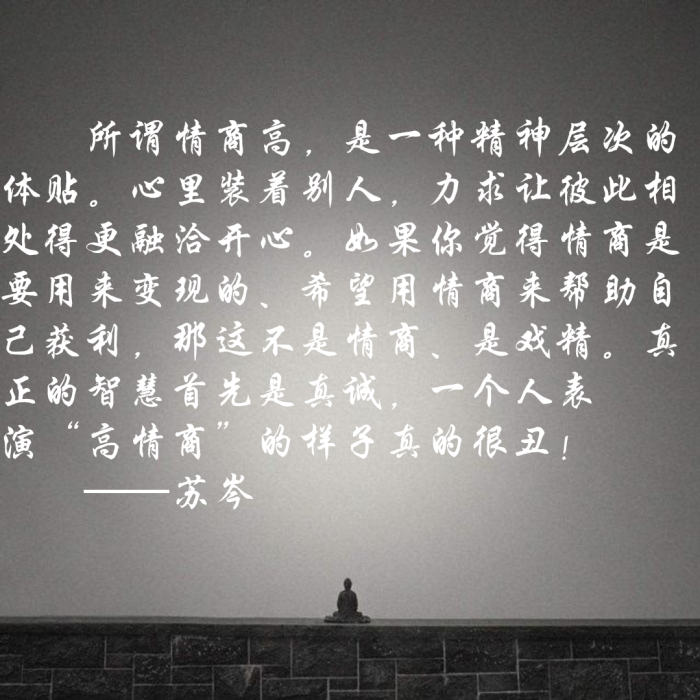 所谓情商高，是一种精神层次的
体贴。心里装着别人，力求让彼此相
处得更融洽开心。如果你觉得情商是
要用来变现的、希望用情商来帮助自
己获利，那这不是情商、是戏精。真
正的智慧首先是真诚，一个人表
演“高情商”的样子真的很丑！
——苏岑